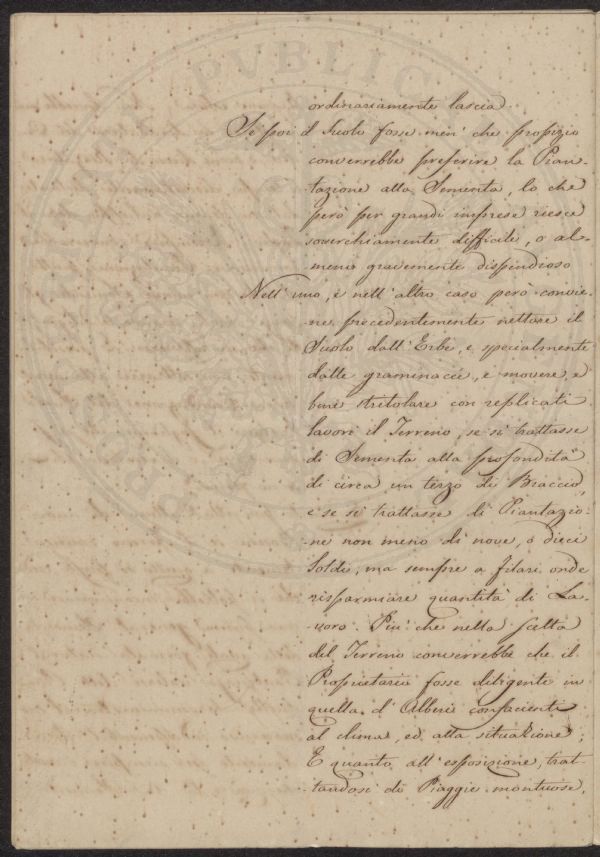 ordinariamente lascia.
Se poi il Suolo fosse men' che propizio
converrebbe preferire la Pian-
tazione alla Sementa, lo che
però per grandi imprese riesce
soverchiamente difficile, o al-
meno gravemente dispendioso
Nell' uno, e nell' altro caso però convie-
ne precedentemente nettare il
Suolo dall' Erbe, e specialmente
dalle graminacee, e movere, e
bene stritolare con replicati
lavori il Terreno, se si trattasse
di Sementa alla profondità
di circa un terzo di Braccio,
e se si trattasse di Piantazio-
ne non meno di nove, o dieci
Soldi, ma sempre a filari onde
risparmiare quantità di La-
voro. Più che nella scelta
del Terreno converrebbe che il
Proprietario fosse diligente in
quella d' Alberi confacienti
al clima, ed alla situazione;
E quanto all' esposizione, trat-
tandosi di Piaggie montuose,
PVBLIC